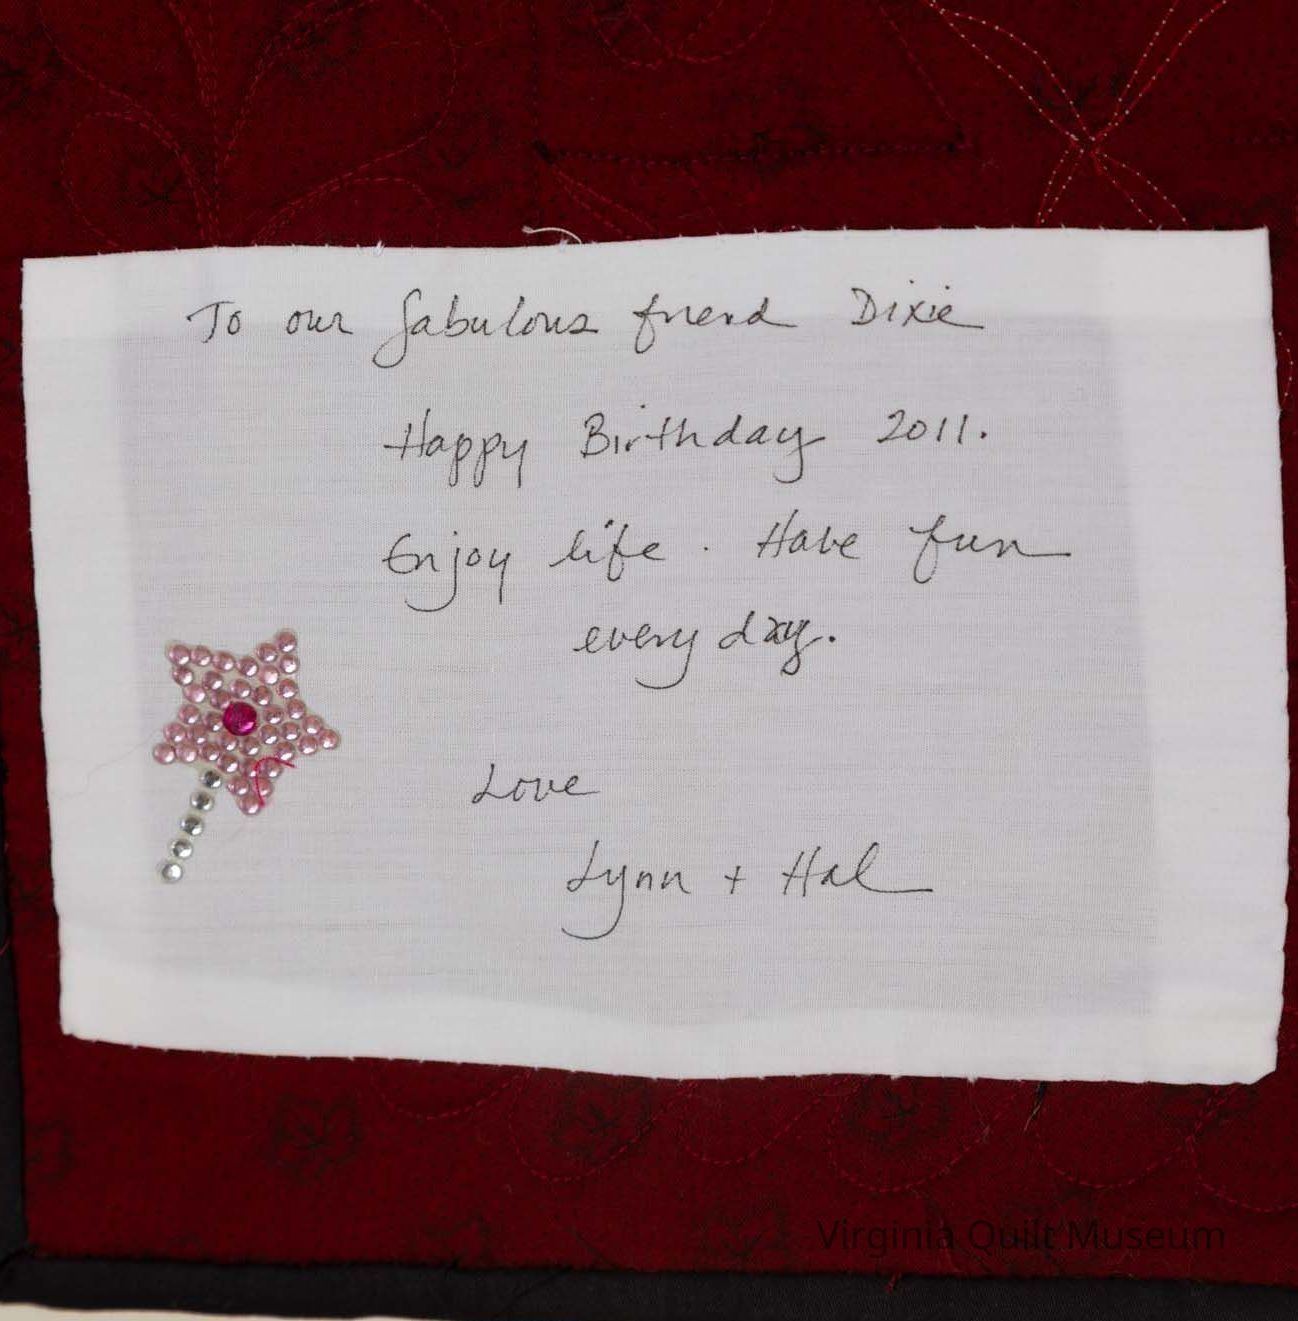 To our fabulous friend Dixie
Happy Birthday 2011.
Enjoy life. Have fun
every day.
Love
Lynn + Hal
Virginia Quilt Museum